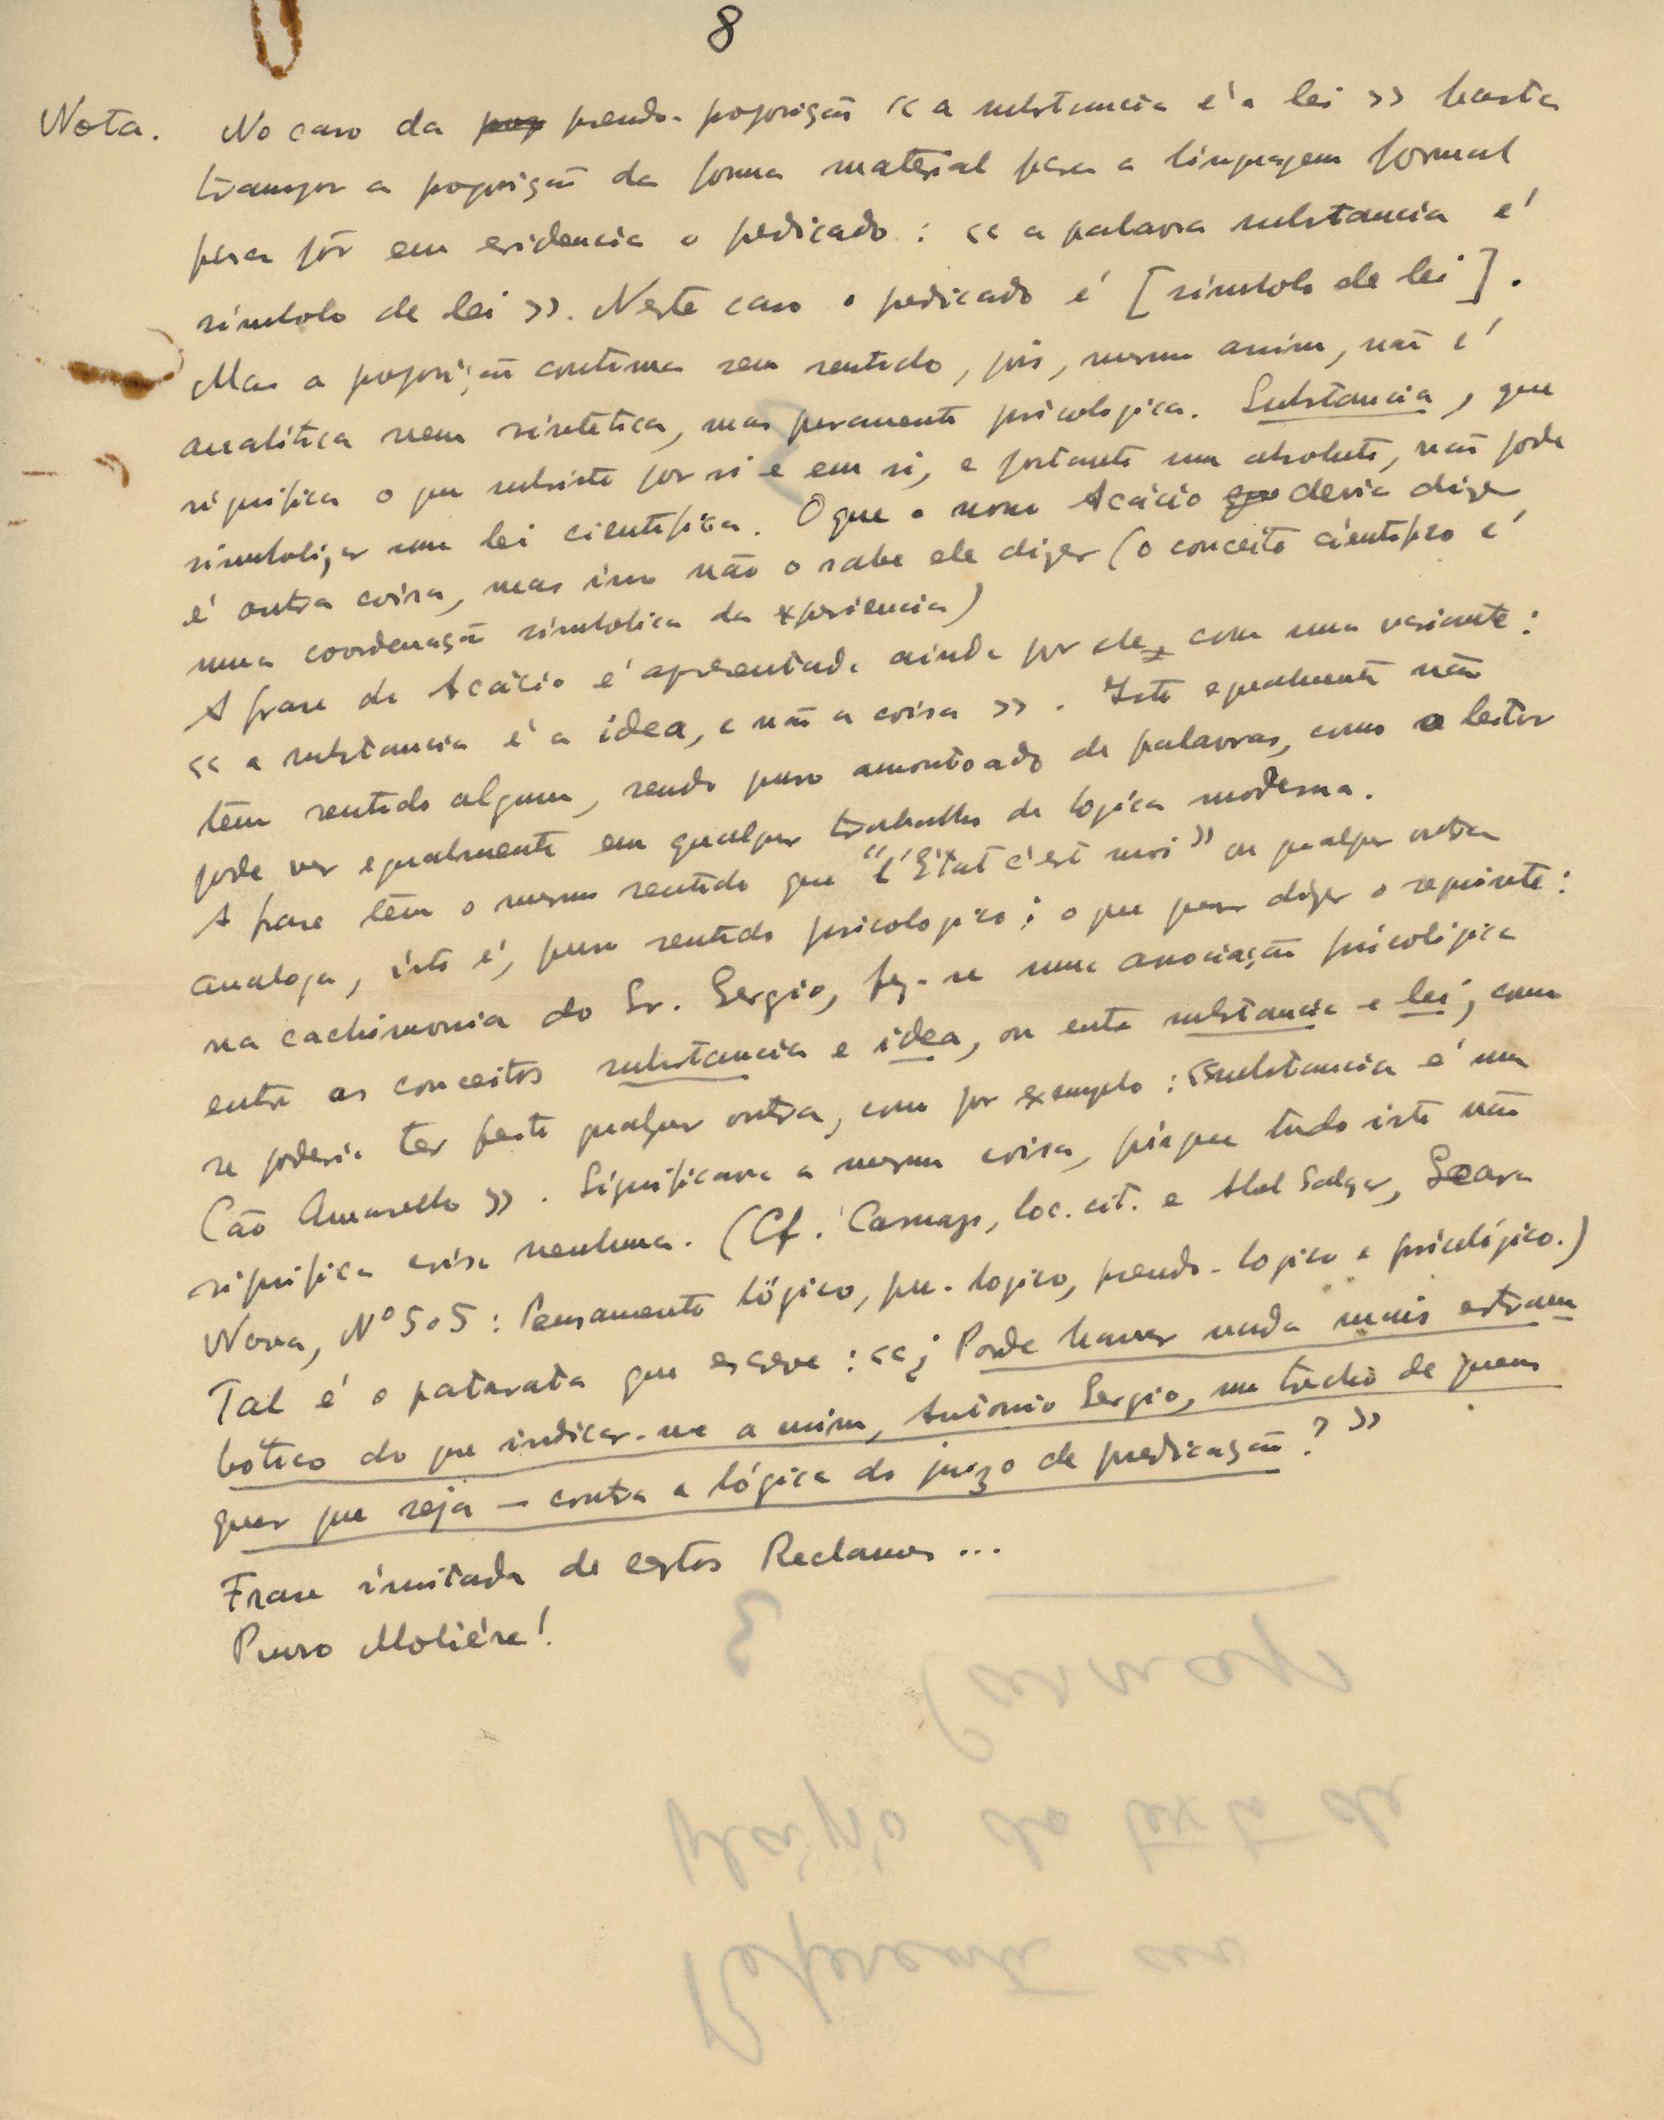 8
Nota. No caso da pseudo-proposição << a substancia é a lei >> basta
transpor a proposição da forma material para a linguagem formal
para pôr em evidencia o predicado : << a palavra substancia é
símbolo de lei >>. Neste caso o predicado é [símbolo de lei].
Mas a proposição continua sem sentido, pois, mesmo assim, não é
analítica nem sintetica, mas puramente psicologica. Substancia, que
significa o que subsiste por si e em si, e portanto um absoluto, não pode
simbolizar uma lei científica. O que o novo Acácio deveria dizer
é outra coisa, mas isso não o sabe ele dizer (o conceito científico é
uma coordenação simbolica da experiencia)
A frase de Acácio é apresentada ainda por ele, com uma variante :
<< a substancia é a idea, e não a coisa >>. Isto egualmente não
têm sentido algum, sendo puro amontoado de palavras, como o leitor
pode ver egualmente em qualquer trabalho de logica moderna.
A frase têm o mesmo sentido que "l'État c'est moi" ou qualquer outra
analoga, isto é, puro sentido psicologico; o que quer dizer o seguinte :
na cachimonia do Sr. Sergio, fez-se uma associação psicológica
entre os conceitos substancia e idea, ou entre substancia e lei, como
se poderia ter feito qualquer outra, como por exemplo : <<substancia é um
Cão Amarello >>. Significava a mesma coisa, porque tudo isto não
significa coisa nenhuma. (Cf. Carnap, loc. cit. e Abel Salazar, Seara
Nova, Nº 505 : Pensamento lógico, pre-logico, pseudo-logico e psicológico.)
Tal é o patarata que escreve : <<¿ Pode haver nada mais estram
bótico do que indicar-me a mim, António Sergio, um trecho de quem
quer que seja — contra a lógica do juízo de predicação ? >>
Frase imitada de certos Reclames ...
Puro Moliére !
Referente ao
plágio do texto de
Carnap